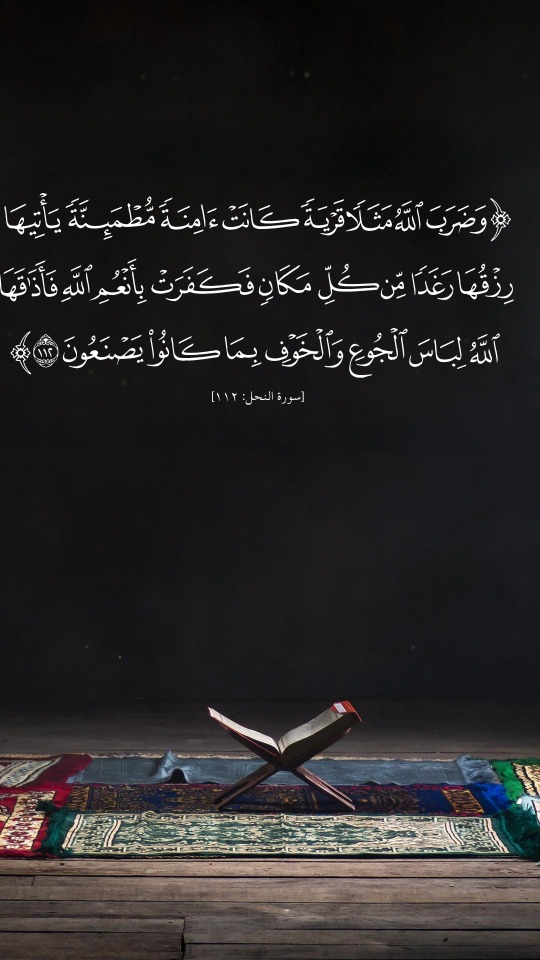 ﴿وَضَرَبَ ٱللَّهُ مَثَلٗا قَرۡيَةٗ كَانَتۡ ءَامِنَةٗ مُّطۡمَئِنَّةٗ يَأۡتِيهَا
رِزۡقُهَا رَغَدٗا مِّن كُلِّ مَكَانٖ فَكَفَرَتۡ بِأَنۡعُمِ ٱللَّهِ فَأَذَٰقَهَا
ٱللَّهُ لِبَاسَ ٱلۡجُوعِ وَٱلۡخَوۡفِ بِمَا كَانُواْ يَصۡنَعُونَ ١١٢﴾
[سورة النحل: ١١٢]